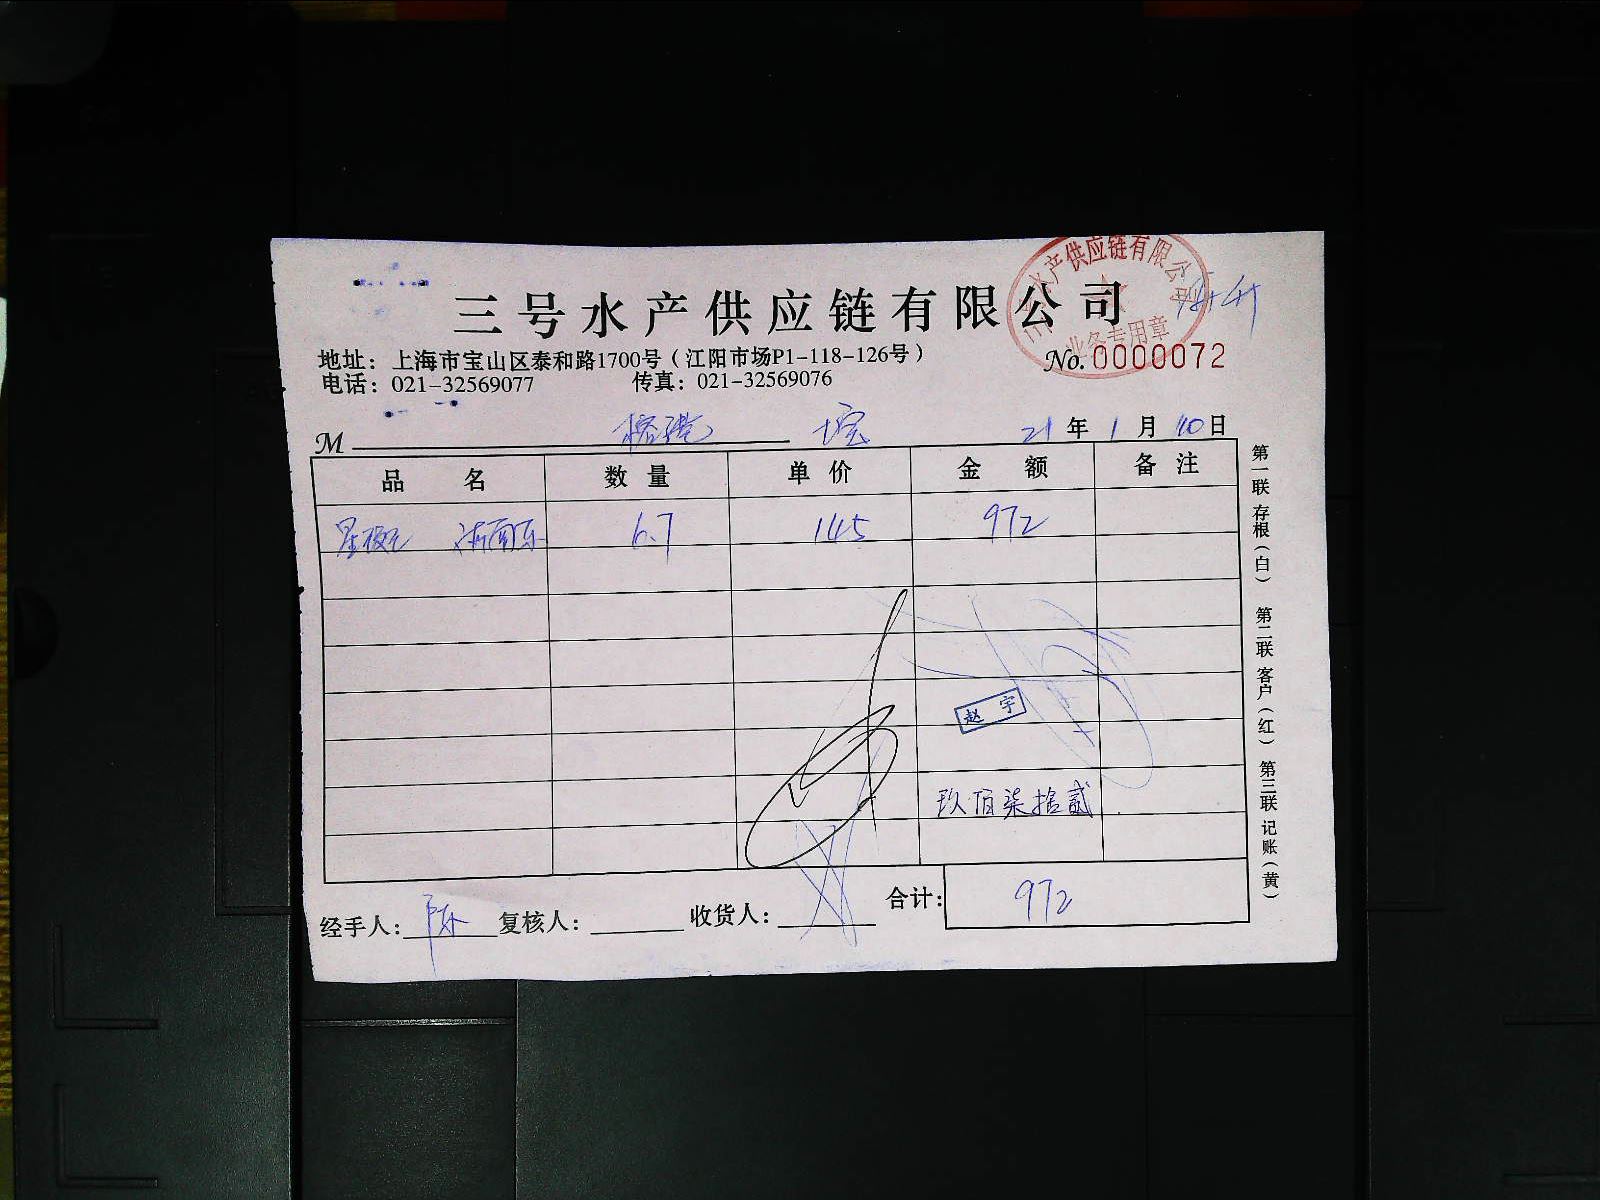 三号水产供应链有限公司
水产供应链有限公司
业务专用章
地址：上海市宝山区泰和路1700号（江阳市场P1-118-126号）
No.0000072
电话：021-32569077 传真：021-32569076
M 21年1月10日
品名 数量 单价 金额 备注
6.7 145 972
赵宇
玖佰柒拾贰
合计：972
经手人：陈 复核人： 收货人：
第一联 存根（白） 第二联 客户（红） 第三联 记账（黄）